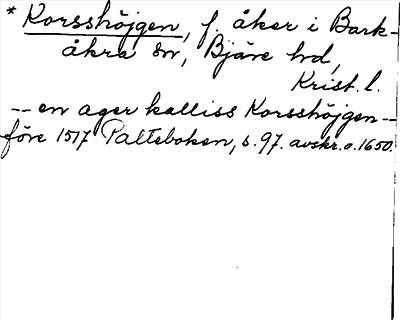 * Korsshöjgen, f. åker i Bark-
åkra sn, Bjäre hd,
Krist. l.
-- en ager kalliss Korsshöjgen --
före 1517 Palteboken, s. 97. avskr. o. 1650.